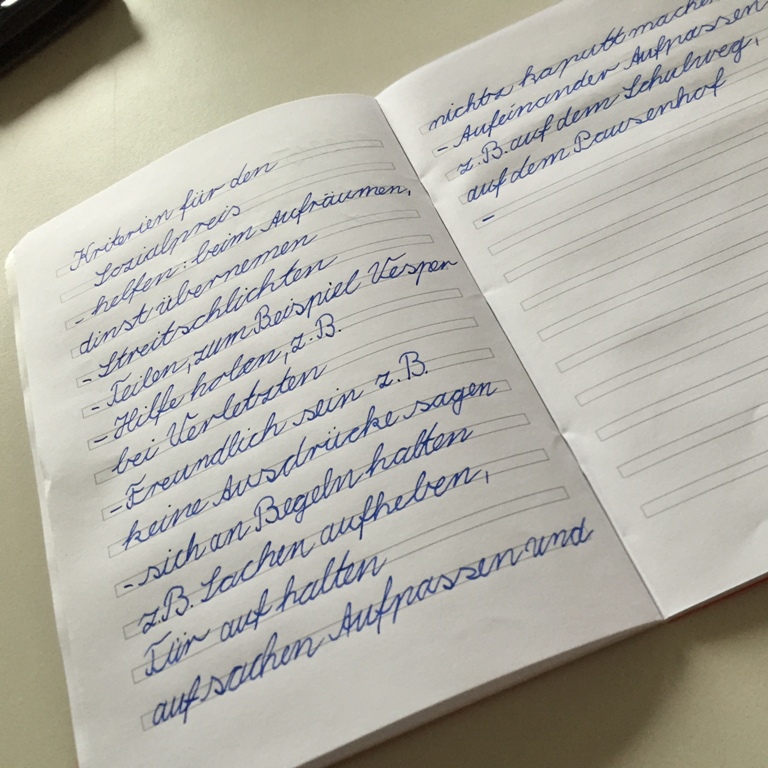 Kriterien für den
Sozialpreis
- helfen: beim Aufräumen,
dinst übernemen
- Streitschlichten
- Teilen, zum Beispiel Vesper
- Hilfe holen, z.B.
bei Verletzten
- Freundlich sein z.B.
keine Ausdrücke sagen
- sich an Regeln halten
z.B. Sachen aufheben,
Tür auf halten
auf sachen Aufpassen und
nichts kaputt machen
- Aufeinander Aufpassen
z.B. auf dem Schulweg,
auf dem Pausenhof
-